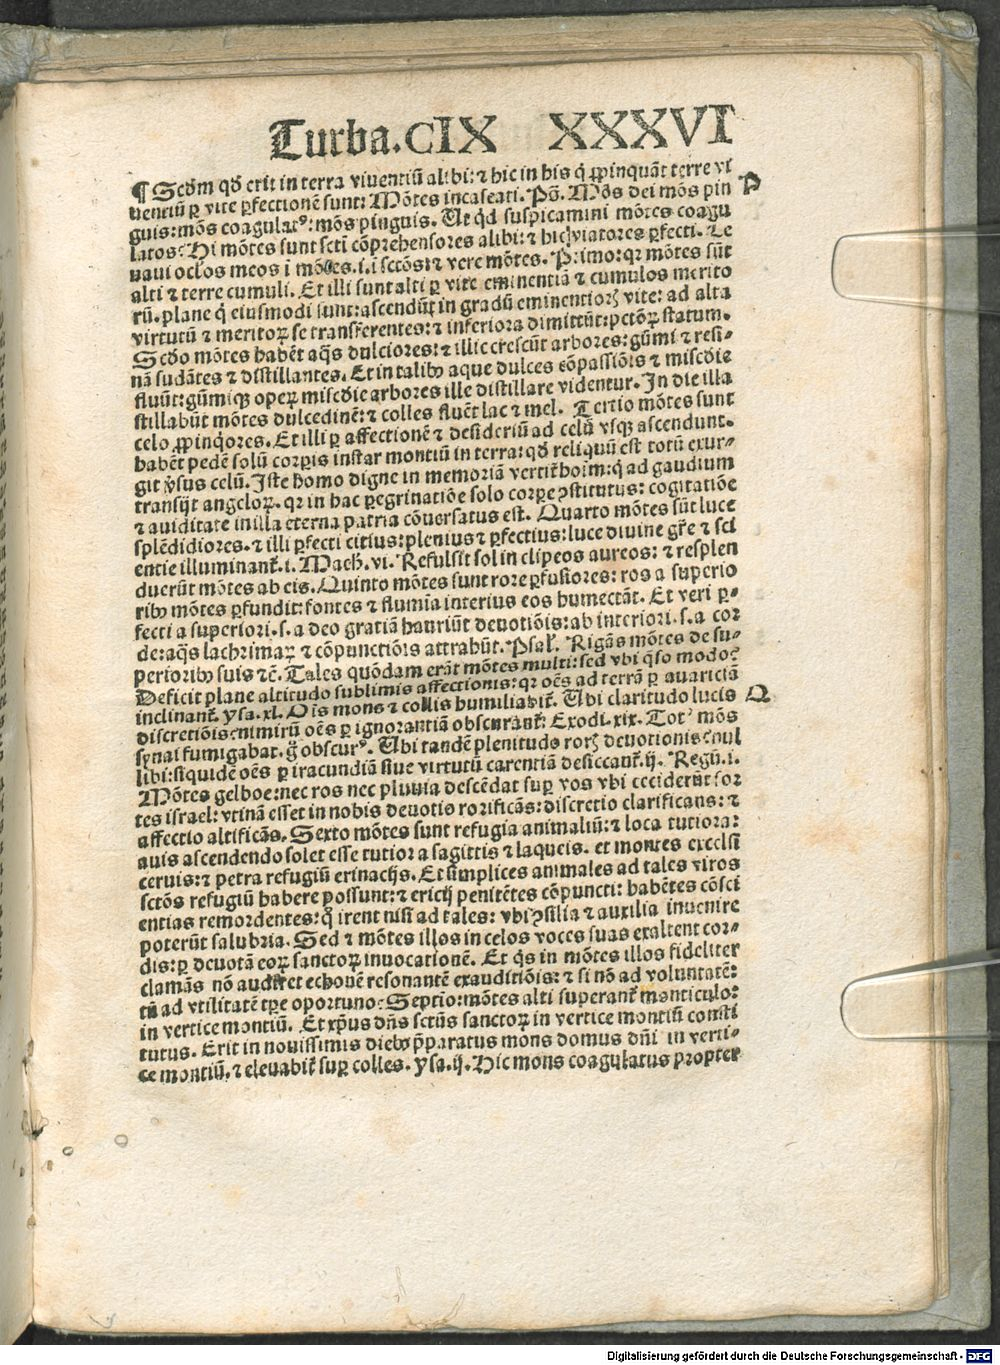 Turba.CIX XXXVI
¶ Scd̃m qd̃ erit in terra viuentiũ alibi: ⁊ hic in his q̃ ꝓpinquãt terre vi P
uentiũ ꝑ vite ꝑfectionẽ sunt: Mõtes incaseati. Ps̃. Mõs dei mõs pin
guis: mõs coagulatꝰ: mõs pinguis. Ut qd̃ suspicamini mõtes coagu
latos? Hi mõtes sunt scti cõprehensores alibi: ⁊ hic viatores ꝑfecti. Le
uaui oclos meos i mõtes. i. i sctõs: ⁊ vere mõtes. Primo: qꝛ mõtes sũt
alti ⁊ terre cumuli. Et illi sunt alti ꝑ vite eminentiã ⁊ cumulos merito
rũ. plane q̃ eiusmodi sunt: ascendũt in gradũ eminentioꝝ vite: ad alta
virtutũ ⁊ meritoꝝ se transferentes: ⁊ inferiora dimittũt: pctõꝝ statum.
Scdo mõtes habẽt aq̃s dulciores: ⁊ illic crescũt arbores: gũmi ⁊ resi-
nã sudãtes ⁊ distillantes. Et in talibꝰ aque dulces cõpassiõis ⁊ miscđie
fluũt: gũmiqꝫ opeꝝ miscđie arbores ille distillare videntur. In die illa
stillabũt mõtes dulcedinẽ: ⁊ colles fluẽt lac ⁊ mel. Tertio mõtes sunt
celo ꝓpinq̃ores. Et illi ꝑ affectionẽ ⁊ desideriũ ad celũ vsqꝫ ascendunt.
habẽt pedẽ solũ corꝑis instar montiũ in terra: qd̃ reliquũ est totũ exur-
git ṽsus celũ. Iste homo digne in memoriã vertit̃ hoim: q̃ ad gaudium
transijt angeloꝝ. qꝛ in hac ꝑegrinatiõe solo corꝑe ꝯstitutus: cogitatiõe
⁊ auiditate in illa eterna patria cõuersatus est. Quarto mõtes sũt luce
splẽdidiores. ⁊ illi ꝑfecti citius: plenius ⁊ ꝑfectius: luce diuine gr̃e ⁊ sci
entie illuminant̃. i. Mach. vi. Refulsit sol in clipeos aureos: ⁊ resplen
duerũt mõtes ab eis. Quinto mõtes sunt rore ꝑfusiores: ros a superio
ribꝰ mõtes ꝑfundit: fontes ⁊ flumĩa interius eos humectãt. Et veri ꝑ-
fecti a superiori. s. a deo gratiã hauriũt deuotiõis: ab interiori. s. a cor
de: aq̃s lachrimaꝝ ⁊ cõpunctiõis attrahũt. Psal̃. Rigãs mõtes de su-
perioribꝰ suis ⁊c̃. Tales quõdam erãt mõtes multi: sed vbi q̃so modo?
Deficit plane altitudo sublimis affectionis: qꝛ oẽs ad terrã ꝑ auariciã
inclinant̃. ysa. xl. Ois mons ⁊ collis humiliabit̃. Ubi claritudo lucis Q
discretiõis? nimirũ oẽs ꝑ ignorantiã obscurant̃: Exodi. xix. Totꝰ mõs
synai fumigabat. g̃ obscurꝰ. Ubi tandẽ plenitudo roꝝ deuotionis? nul
libi: siquidẽ oẽs ꝑ iracundiã siue virtutũ carentiã desiccant̃. ij. Regũ. i.
Mõtes gelboe: nec ros nec pluuia descẽdat suꝑ vos vbi ceciderũt for
tes israel: vtinã esset in nobis deuotio rorificãs: discretio clarificans: ⁊
affectio altificãs. Sexto mõtes sunt refugia animaliũ: ⁊ loca tutiora:
auis ascendendo solet esse tutior a sagittis ⁊ laqueis. et montes excelsi
ceruis: ⁊ petra refugiũ erinacijs. Et simplices animales ad tales viros
sctõs refugiũ habere possunt: ⁊ ericij penitẽtes cõpuncti: habẽtes cõsci
entias remordentes: q̃ irent nisi ad tales: vbi ꝯsilia ⁊ auxilia inuenire
poterũt salubria. Sed ⁊ mõtes illos in celos voces suas exaltent cor-
dis: ꝑ deuotã eoꝝ sanctoꝝ inuocationẽ. Et q̃s in mõtes illos fideliter
clamãs nõ audiret echonẽ resonantẽ exauditiõis: ⁊ si nõ ad voluntatẽ:
tñ ad vtilitatẽ tꝑe oportuno? Septio: mõtes alti superant̃ monticulo:
in vertice montiũ. Et xp̃us dñs sctũs sanctoꝝ in vertice montiũ consti
tutus. Erit in nouissimis diebꝰ p̃paratus mons domus dñi in verti-
ce montiũ. ⁊ eleuabit̃ suꝑ colles. ysa. ij. Hic mons coagulatus propter
Digitalisierung gefördert durch die Deutsche Forschungsgemeinschaft - DFG